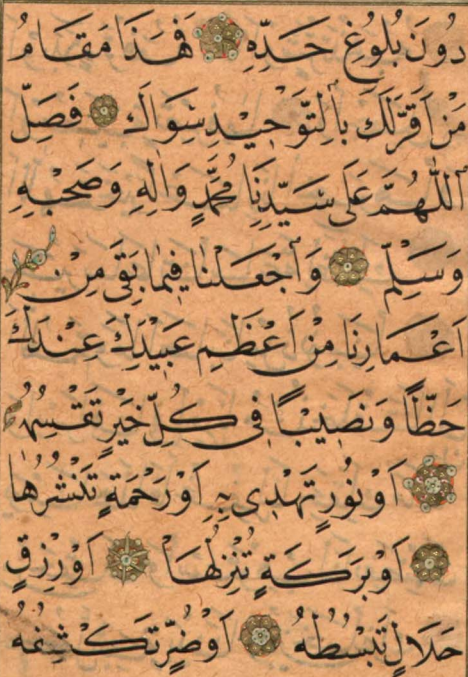 دُونَ بُلُوغِ حَدِّهِ فَهَذَا مَقَامُ
مَنْ اَقَرَّ لَكَ بِالتَّوْحِيدِ سِوَاكَ فَصَلِّ
اَللّٰهُمَّ عَلَى سَيِّدِنَا مُحَمَّدٍ وَاٰلِهِ وَصَحْبِهِ
وَسَلِّمْ وَاجْعَلْنَا فِيمَا بَقِىَ مِنْ
اَعْمَارِنَا مِنْ اَعْظَمِ عَبِيْدِكَ عِنْدَكَ
حَظًّا وَنَصِيْبًا فِى كُلِّ خَيْرٍ تَقْسِمُهُ
اَوْ نُورٍ تَهْدِى بِهِ اَوْ رَحْمَةٍ تَنْشُرُهَا
اَوْ بَرَكَةٍ تُنْزِلُهَا اَوْ رِزْقٍ
حَلَالٍ تَبْسُطُهُ اَوْ ضُرٍّ تَكْشِفُهُ